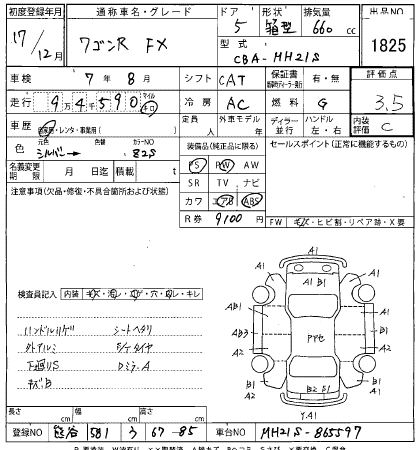 初度登録年月 通称車名・グレード ドア 形状 排気量 出品NO
17/12月 ワゴンR FX 5 箱型 660 cc 1825
型式 CBA-MH21S
車検 7年 8月 シフト CAT 保証書 有・無 評価点
走行 9万4千590 マイル キロ 冷房 AC 燃料 G 3.5
車歴 自家用・レンタ・事業用( ) 定員 人 外車モデル 年 ディーラー 並行 ハンドル 左・右 内装評価 C
色 元色 シルバー 色替 カラーNO 82S 装備品(純正品に限る) セールスポイント(正常に機能するもの)
名義変更期限 月 日迄 積載 t PS PW AW
注意事項(欠品・修復・不具合箇所および状態) SR TV ナビ
カワ エアB ABS
R券 9100円 FW キズ・ヒビ割・リペア跡・X要
A1
A1 A1 B1 A1
検査員記入 内装 キズ・汚レ・コゲ・穴・切レ・キレ
AB1 A1
ハンドルハゲ シートヘタリ AB3 PTセ A2
外アルミ
下廻りS Dミラー A A2 B1
キズB B2 S1 A1
Y.A1
長さ cm 幅 cm 高さ cm
登録NO 熊谷 581 ラ 67-85 車台NO MH21S-865597